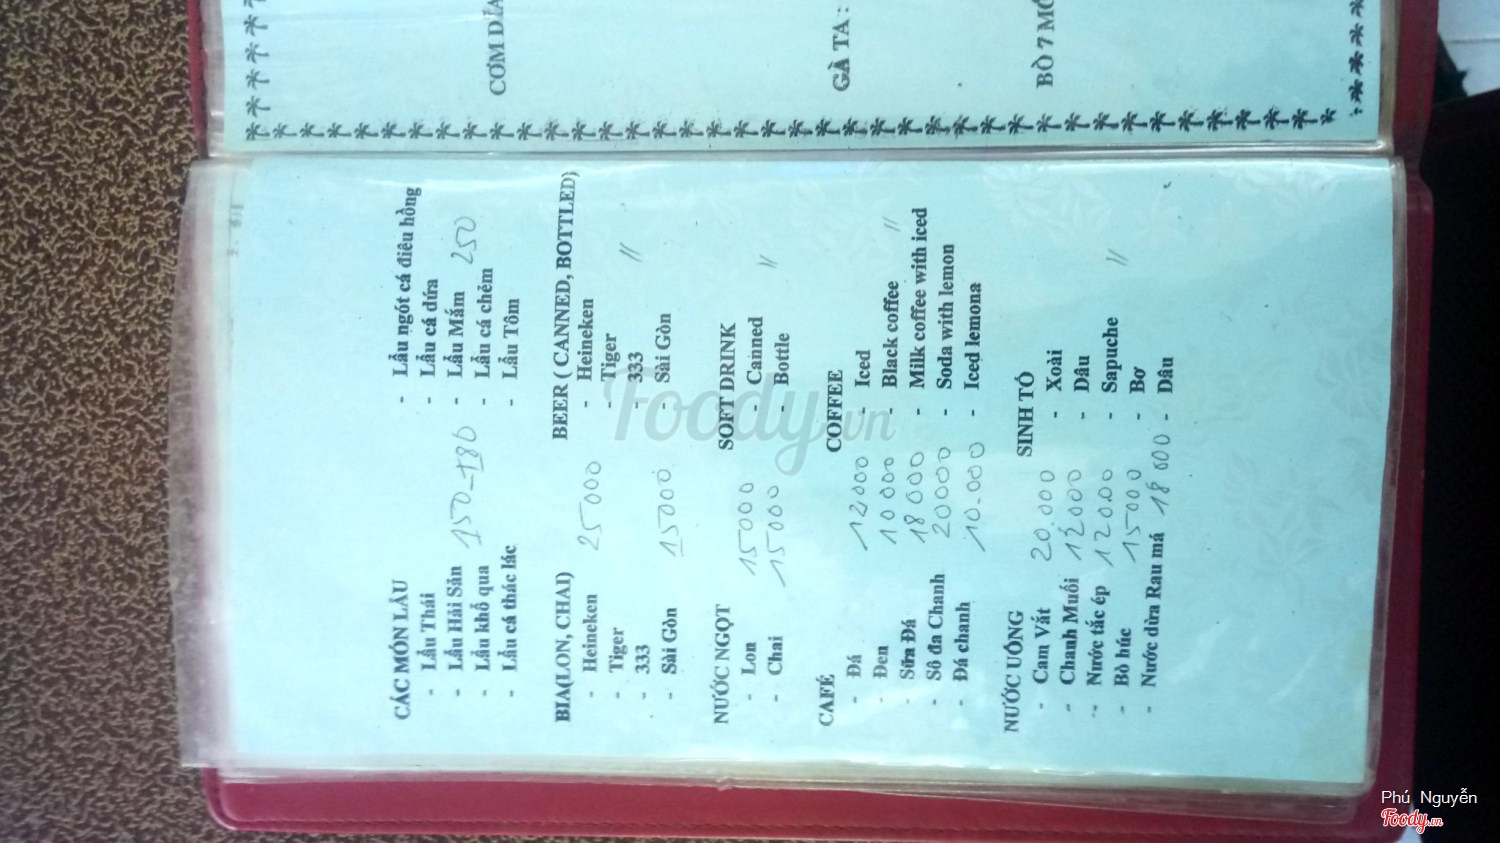 CƠM DĨA
GÀ TA :
BÒ 7 MÓ
CÁC MÓN LẨU
- Lẩu Thái - Lẩu ngót cá điêu hồng
- Lẩu Hải Sản 150-180 - Lẩu cá dứa
- Lẩu khổ qua - Lẩu Mắm 250
- Lẩu cá thác lác - Lẩu cá chẽm
- Lẩu Tôm
BIA(LON, CHAI) BEER ( CANNED, BOTTLED)
- Heineken 25000 - Heineken
- Tiger - Tiger
- 333 - 333 //
- Sài Gòn 15000 - Sài Gòn
NƯỚC NGỌT SOFT DRINK
- Lon 15000 - Canned
- Chai 15000 - Bottle //
CAFÉ COFFEE
- Đá 12000 - Iced
- Đen 10 000 - Black coffee //
- Sữa Đá 18 000 - Milk coffee with iced
- Sô đa Chanh 20000 - Soda with lemon
- Đá chanh 10.000 - Iced lemona
NƯỚC UỐNG SINH TỐ
- Cam Vắt 20.000 - Xoài
- Chanh Muối 12000 - Dâu
- Nước tắc ép 120.00 - Sapuche //
- Bò húc 15000 - Bơ
- Nước dừa Rau má 18 000 - Dâu
Foody.vn
Phú Nguyễn
Foody.vn